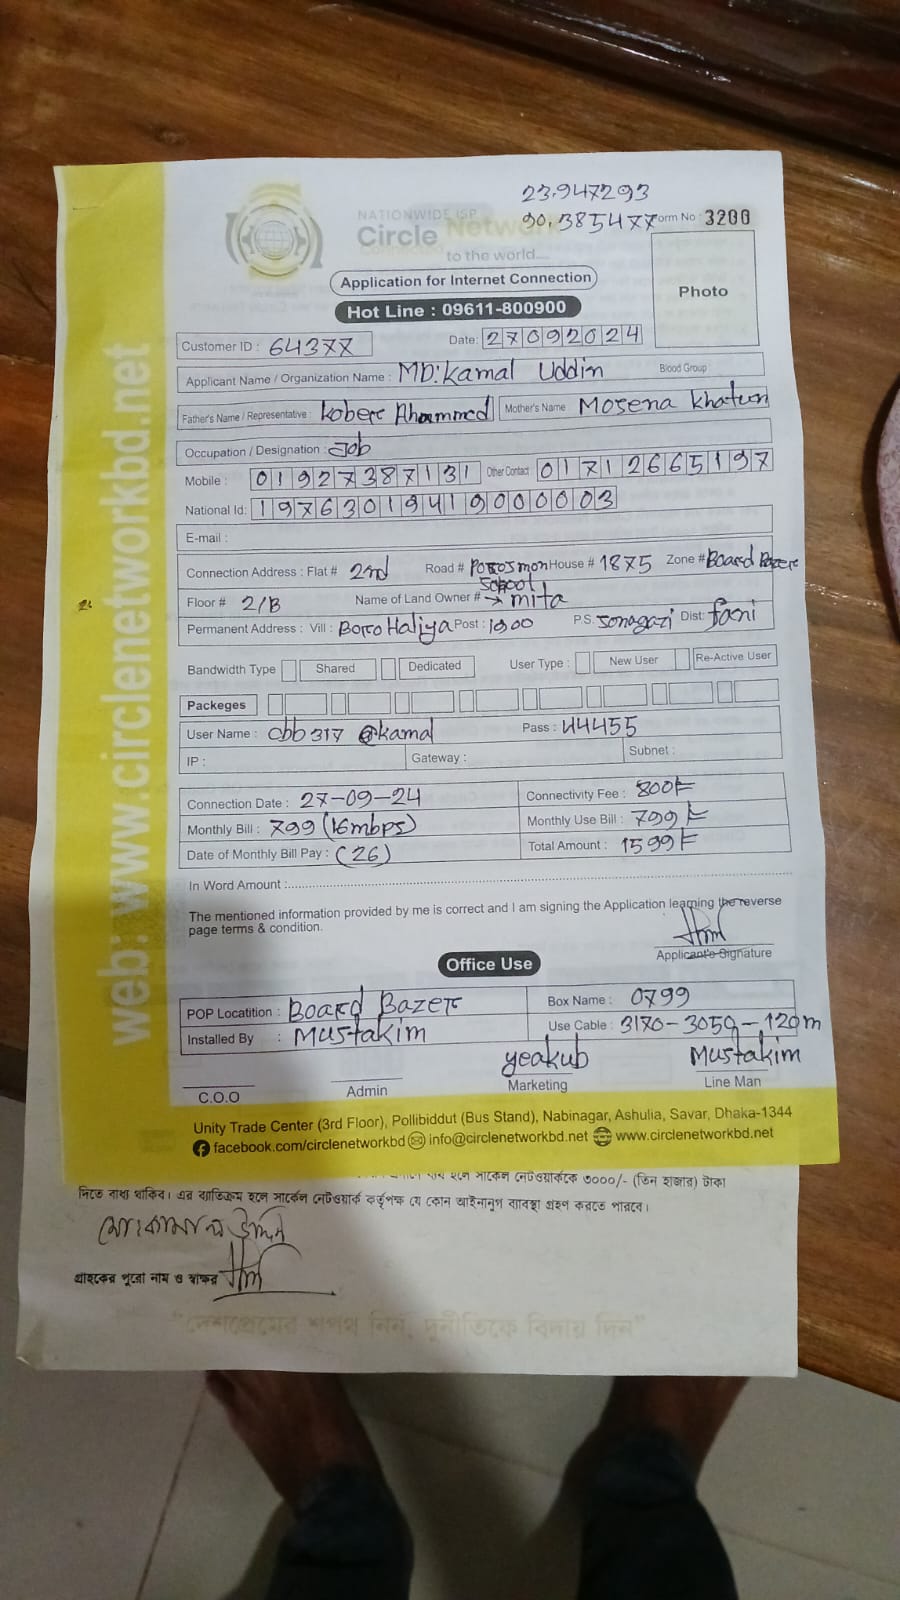 23.947293
90.385477 Form No : 3200
NATIONWIDE ISP
Circle Network
to the world....
Application for Internet Connection
Hot Line : 09611-800900
Photo
Customer ID : 64377 Date: 27092024
Applicant Name / Organization Name : MD:Kamal Uddin Blood Group
Father's Name / Representative : Kober Ahammed Mother's Name Mosena Khatun
Occupation / Designation : Job
Mobile : 01927387131 Other Contact 01712665197
National Id: 19763019419000003
E-mail :
Connection Address : Flat # 2nd Road # Porosmon School House # 1875 Zone # Board Bazer
Floor # 2/B Name of Land Owner # → mita
Permanent Address : Vill : Borro Haliya Post : 1900 P.S. Sonagazi Dist: fani
Bandwidth Type Shared Dedicated User Type : New User Re-Active User
Packeges
User Name : cbb317@kamal Pass : 44455
IP : Gateway : Subnet :
Connection Date : 27-09-24 Connectivity Fee : 800৳
Monthly Bill : 799 (16mbps) Monthly Use Bill : 799৳
Date of Monthly Bill Pay : (26) Total Amount : 1599৳
In Word Amount :
The mentioned information provided by me is correct and I am signing the Application learning the reverse
page terms & condition.
Applicant's Signature
Office Use
POP Locatition : Board Bazer Box Name : 0799
Installed By : Mustakim Use Cable : 3170-3050-120m
yeakub Mustakim
C.O.O Admin Marketing Line Man
Unity Trade Center (3rd Floor), Pollibiddut (Bus Stand), Nabinagar, Ashulia, Savar, Dhaka-1344
facebook.com/circlenetworkbd info@circlenetworkbd.net www.circlenetworkbd.net
web: www.circlenetworkbd.net
হলে সার্কেল নেটওয়ার্ককে ৩০০০/- (তিন হাজার) টাকা
দিতে বাধ্য থাকিব। এর ব্যতিক্রম হলে সার্কেল নেটওয়ার্ক কর্তৃপক্ষ যে কোন আইনানুগ ব্যাবস্থা গ্রহণ করতে পারবে।
মোঃ কামাল উদ্দিন
গ্রাহকের পুরো নাম ও স্বাক্ষর
"দেশপ্রেমের শপথ নিন, দুর্নীতিকে বিদায় দিন"